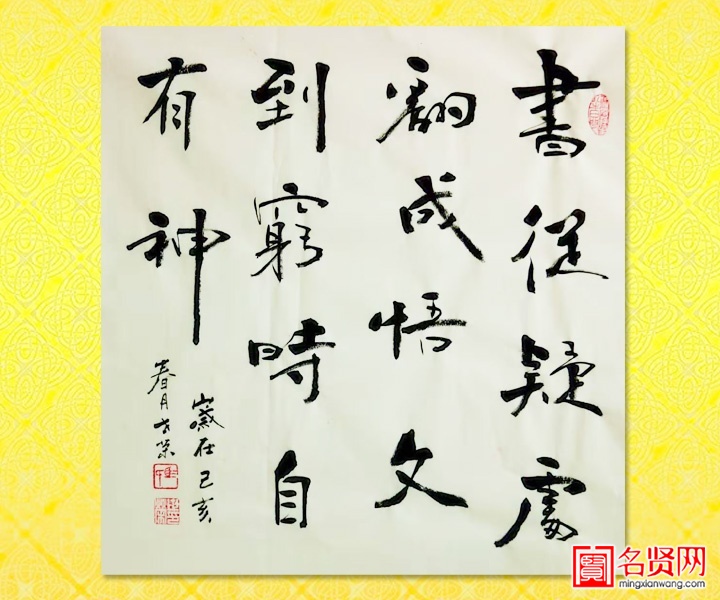 書從疑處
翻成悟文
到窮時自
有神
歲在己亥
春月
賢 名贤网
mingxianwang.com